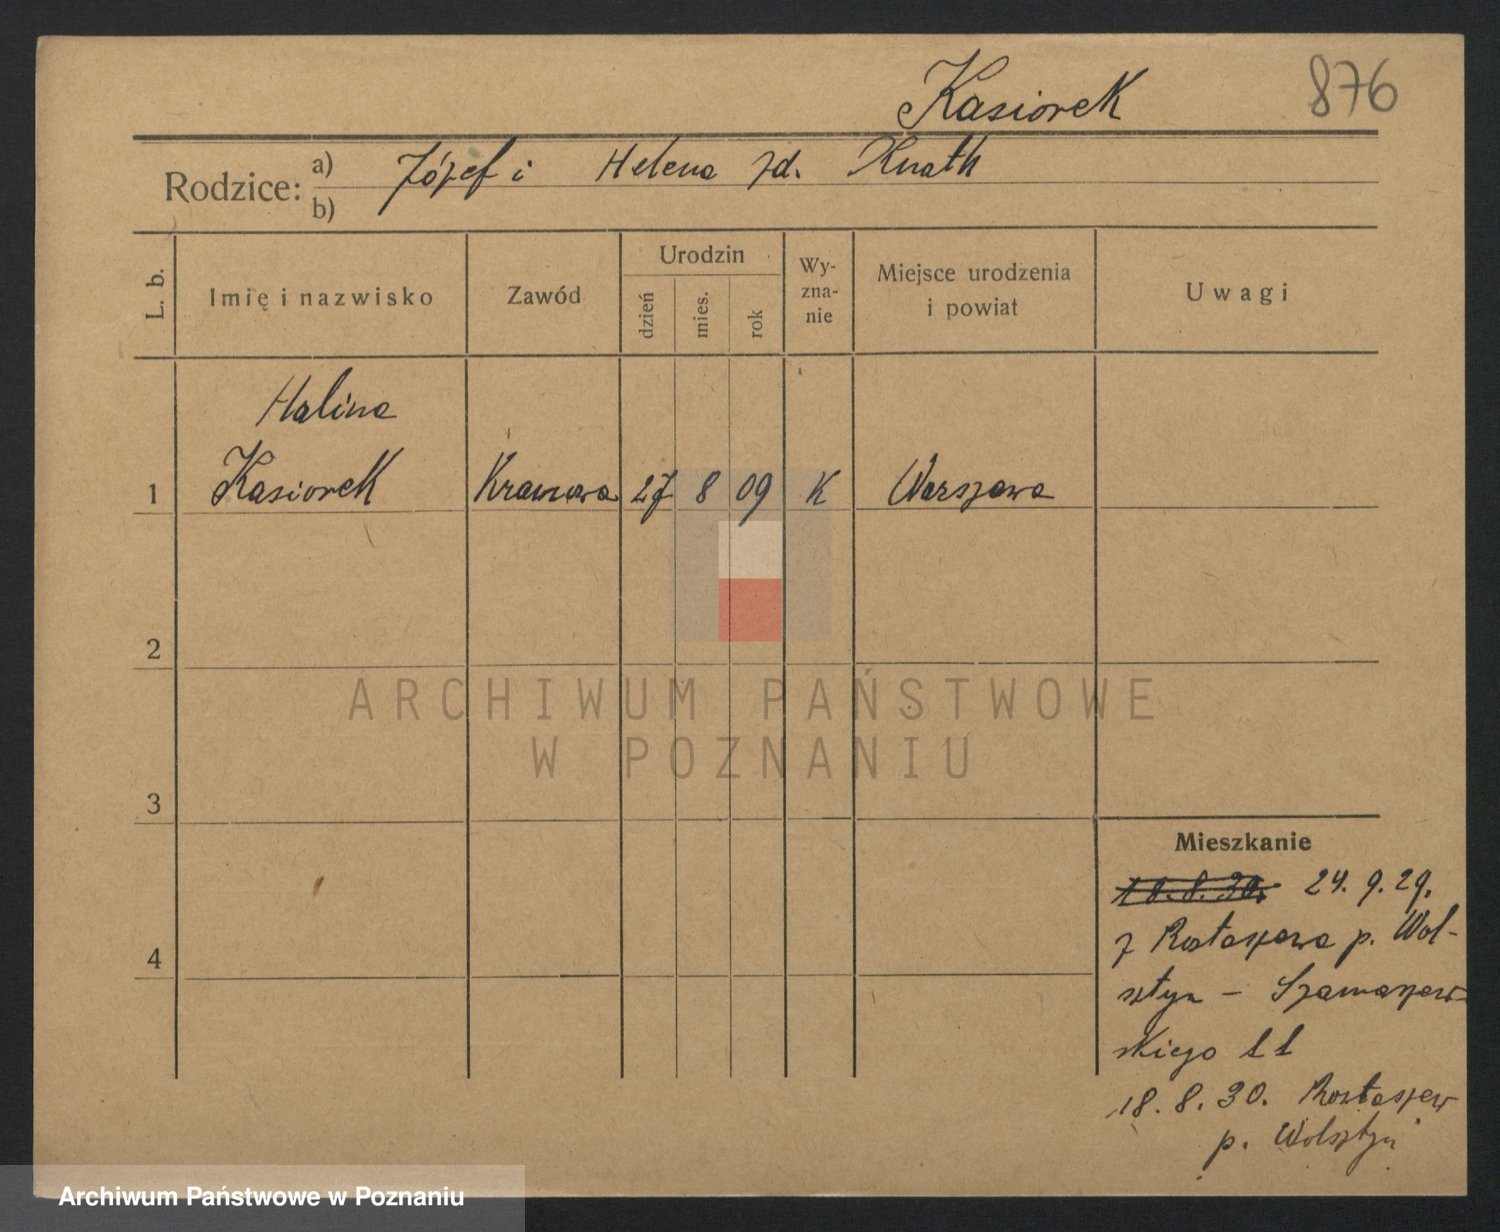 Kasiorek 876
Rodzice: a) Józef i Helena zd. Knath
b)
L. b. Imię i nazwisko Zawód Urodzin dzień mies. rok Wy-zna-nie Miejsce urodzenia i powiat Uwagi
Halina
1 Kasiorek Krawcowa 27 8 09 K Warszawa
2
ARCHIWUM PAŃSTWOWE
W POZNANIU
3
Mieszkanie
18.8.30. 24. 9. 29.
z p. Wol-
sztyn –
skiego 11
4
18. 8. 30.
p. Wolsztyn
Archiwum Państwowe w Poznaniu